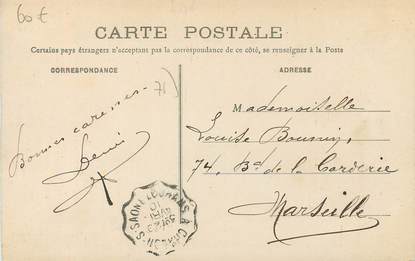 60 €
CARTE POSTALE
Certains pays étrangers n'acceptant pas la correspondance de ce côté, se renseigner à la Poste
CORRESPONDANCE
ADRESSE
71
Bonnes caresses
Mademoiselle
Louise
74, Bd de la Corderie
Marseille
LOUHANS A CHALON-S-SAONE